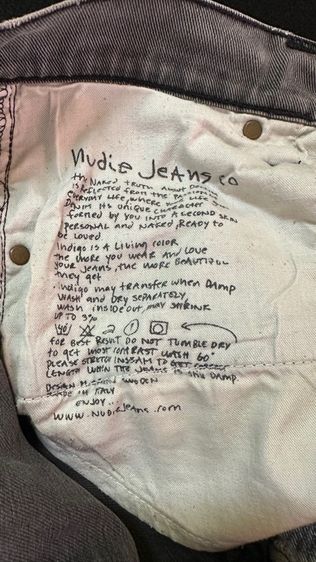 Nudie Jeans co
the Naked truth about Denim
is reflected from the passion
Everyday life, where the life you
its unique character
formed by you into a second skin
personal and naked, ready to
be loved.
Indigo is a living color
the more you wear and love
your jeans, the more beautiful
they get
. indigo may transfer when damp
wash and dry separately,
wash inside out, may shrink
up to 3%
60°
for best result do not tumble dry
to get most contrast wash 60°
please stretch inseam to get correct
length when the jeans is damp.
Design Sweden
made in Italy
enjoy...
www.nudiejeans.com